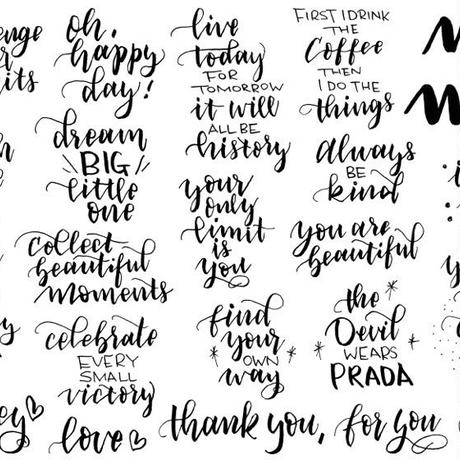 oh,
happy
day!
dream
BIG
little
one
collect
beautiful
moments
celebrate
EVERY
SMALL
victory
love
live
today
FOR
TOMORROW
it will
ALL BE
history
your
only
limit
is
you
find
your
OWN
way
thank you, for you
FIRST I DRINK
THE
Coffee
THEN
I DO THE
things
always
BE
kind
you are
beautiful
the
Devil
WEARS
PRADA